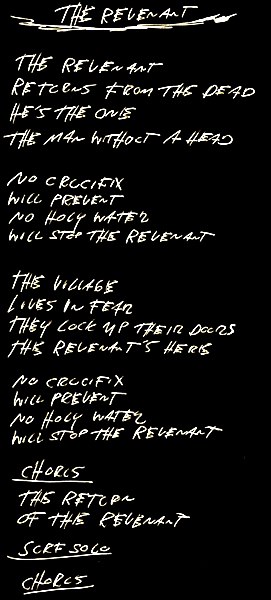 THE REVENANT
THE REVENANT
RETURNS FROM THE DEAD
HE'S THE ONE
THE MAN WITHOUT A HEAD
NO CRUCIFIX
WILL PREVENT
NO HOLY WATER
WILL STOP THE REVENANT
THE VILLAGE
LIVES IN FEAR
THEY LOCK UP THEIR DOORS
THE REVENANT'S HERE
NO CRUCIFIX
WILL PREVENT
NO HOLY WATER
WILL STOP THE REVENANT
CHORUS
THE RETURN
OF THE REVENANT
SURF SOLO
CHORUS